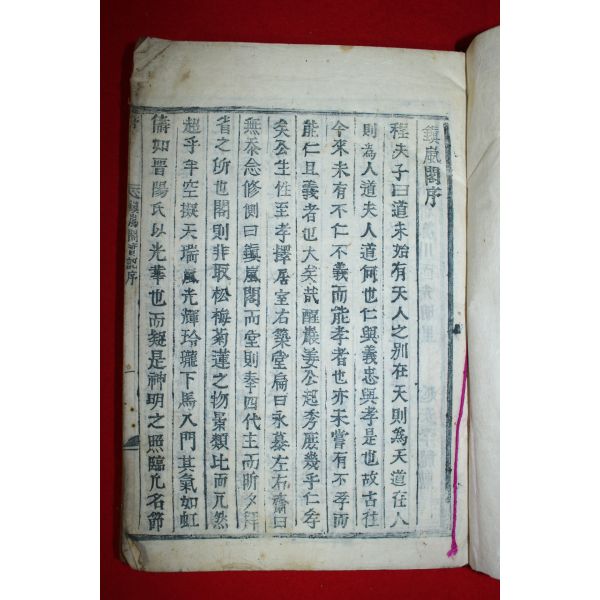 鎭嵐閣序
程夫子曰道未始有天人之別在天則爲天道在人
則爲人道夫人道何也仁與義忠與孝是也故古往
今來未有不仁不義而能孝者也亦未嘗有不孝而
能仁且義者也大矣哉醒巖姜公起秀庶幾乎仁孝
矣公生性至孝擇居室右築堂扁曰永慕左右齋曰
無忝念修側曰鎭嵐閣而堂則奉四代主而晣夕拜
省之所也閣則非取松梅菊蓮之物景類比而兀然
超乎半空擬天瑞嵐光輝玲瓏下馬入門其氣如虹
儔如晋陽氏以光華也而疑是神明之照臨凡名節
鎭嵐閣實記序
一